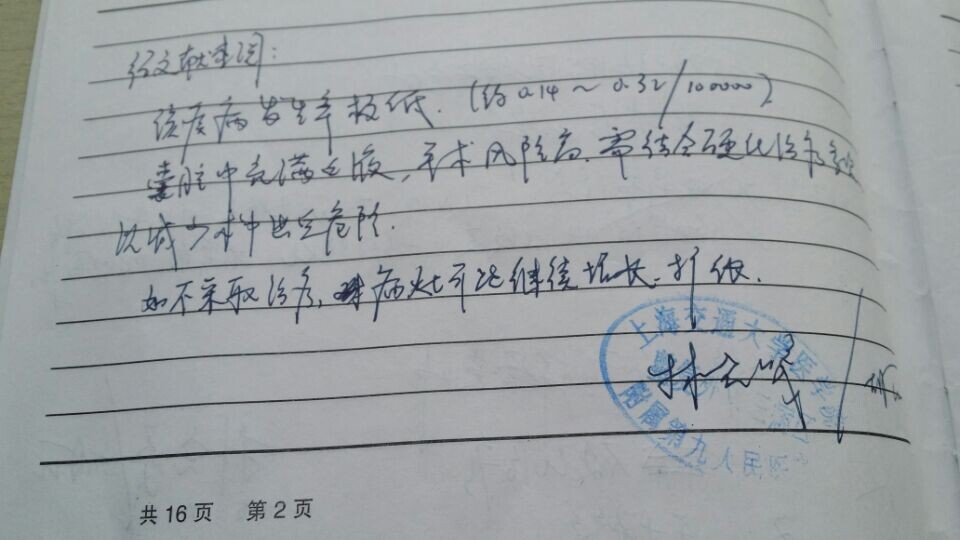 经文献查阅:
该疾病发生率极低.(约0.14~0.32/100000)
囊腔中充满血液,手术风险高.需结合硬化治疗
以减少术中出血危险.
如不采取治疗,病灶可能继续增长、扩散.
上海交通大学医学院
附属第九人民医
共16页 第2页